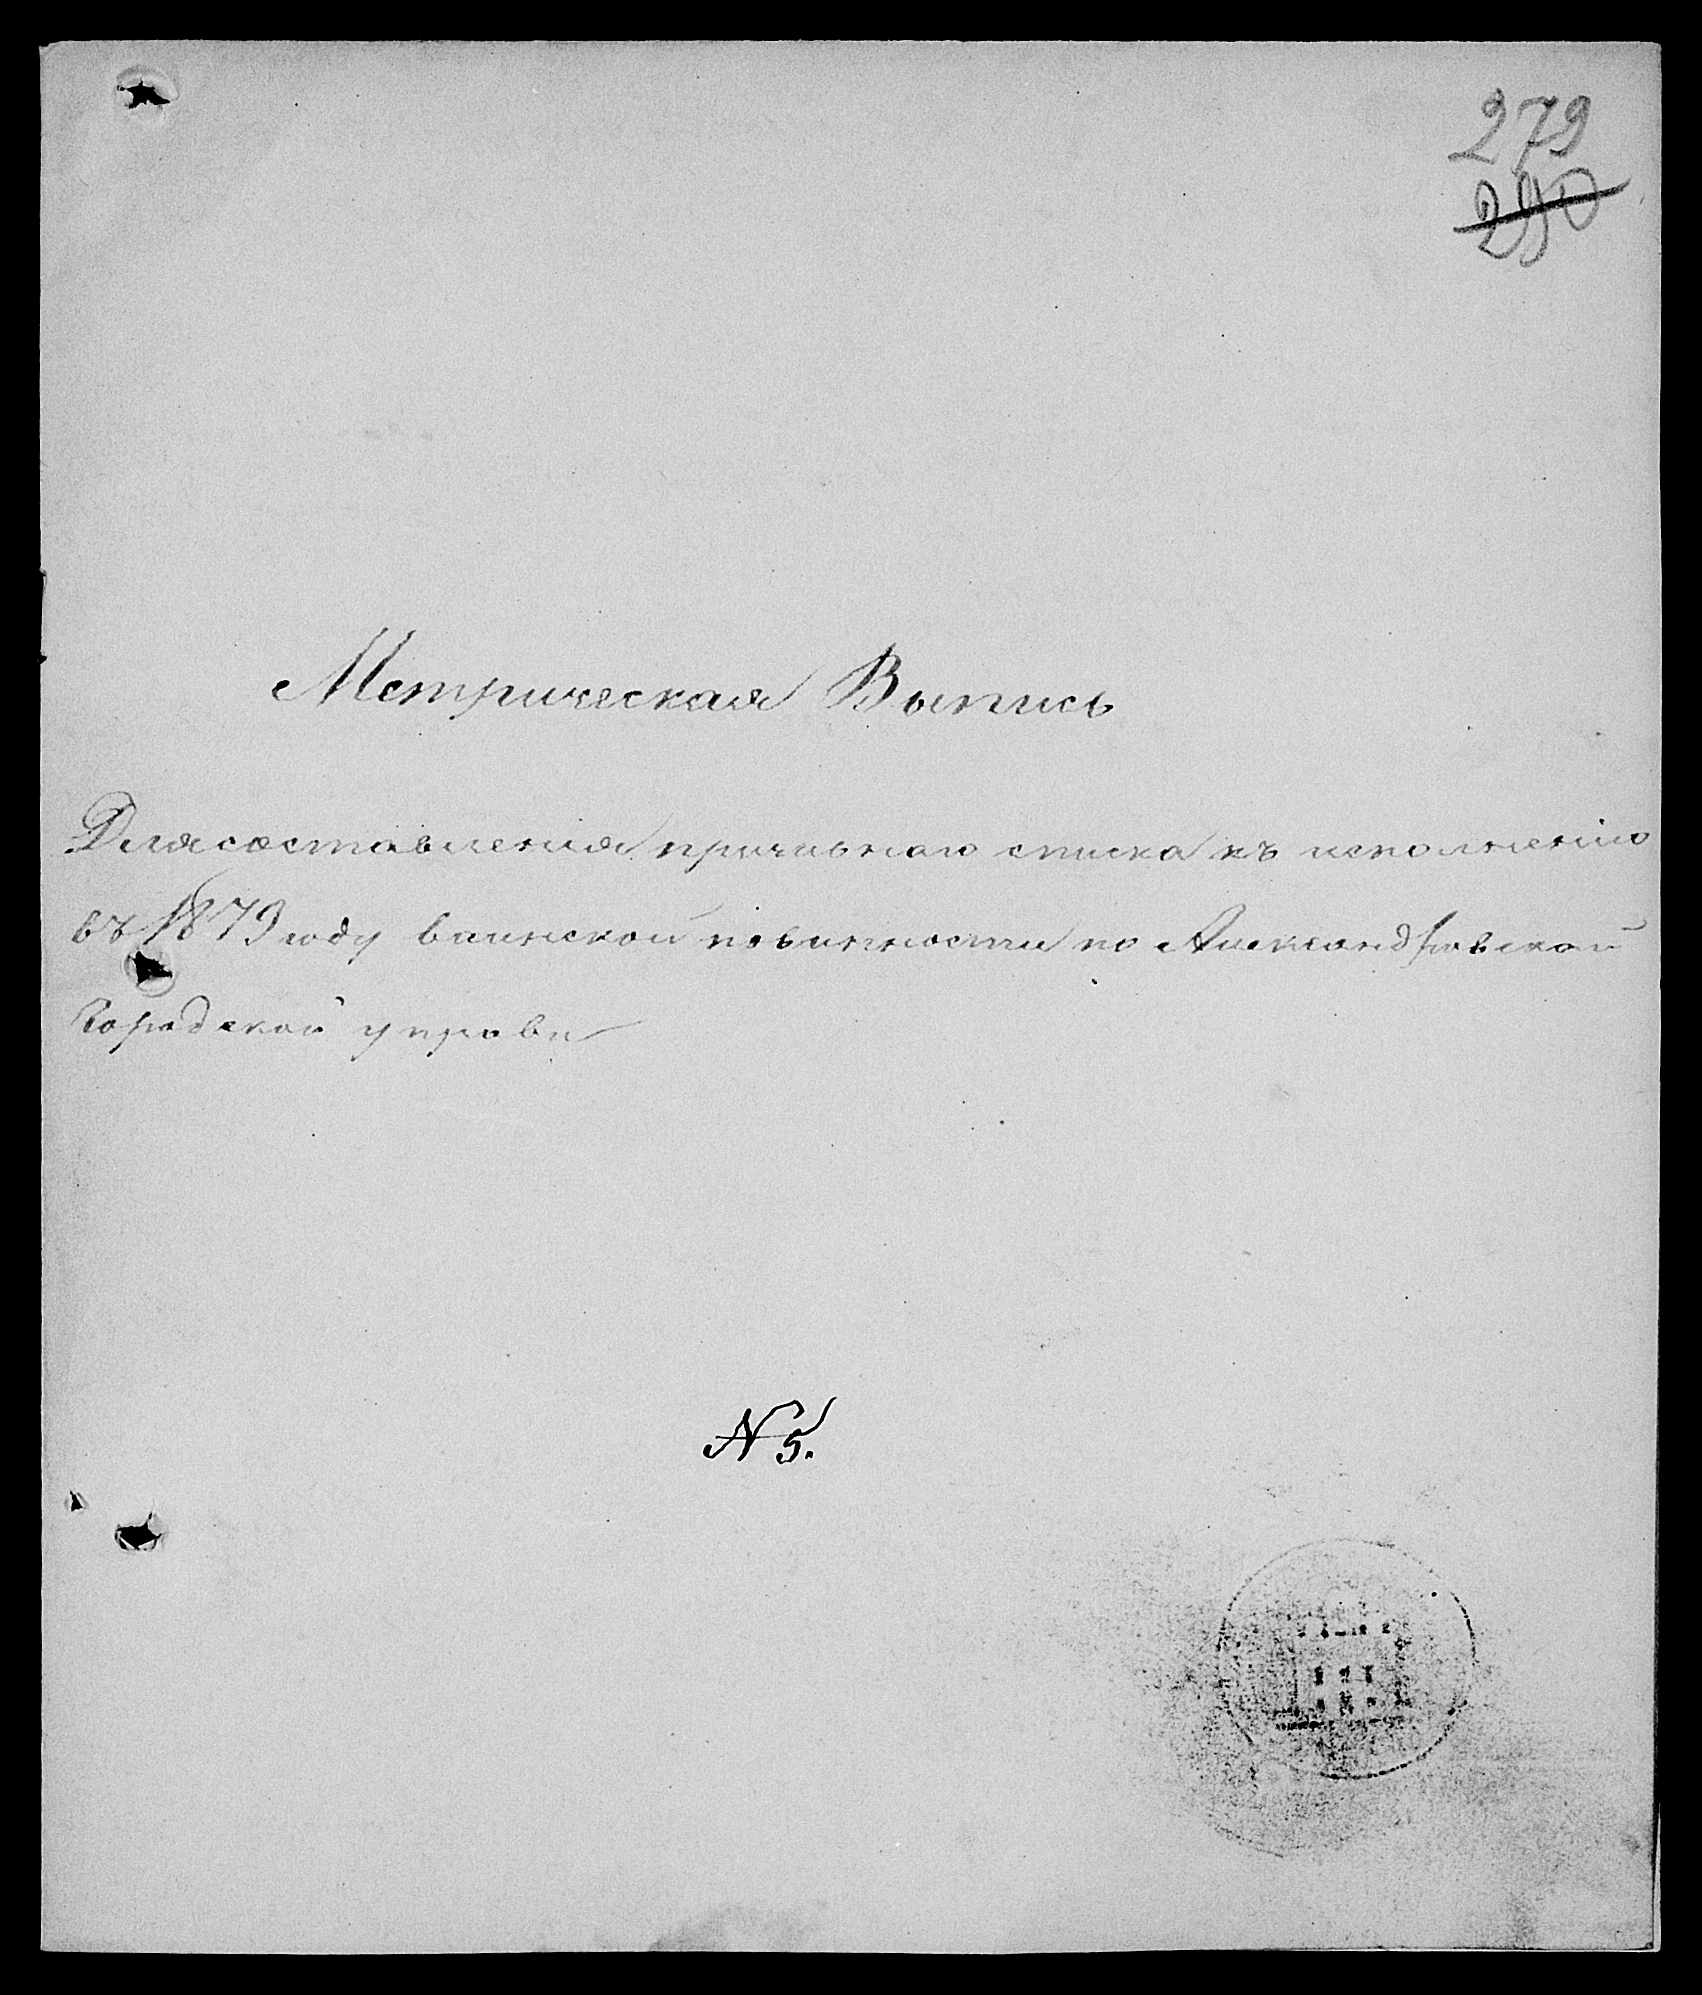 279
290
Метрическая Выпись
Для составленія призывнаго списка къ исполненію
въ 1879 году воинской повинности по Александровской
Городской управѣ
№ 5.